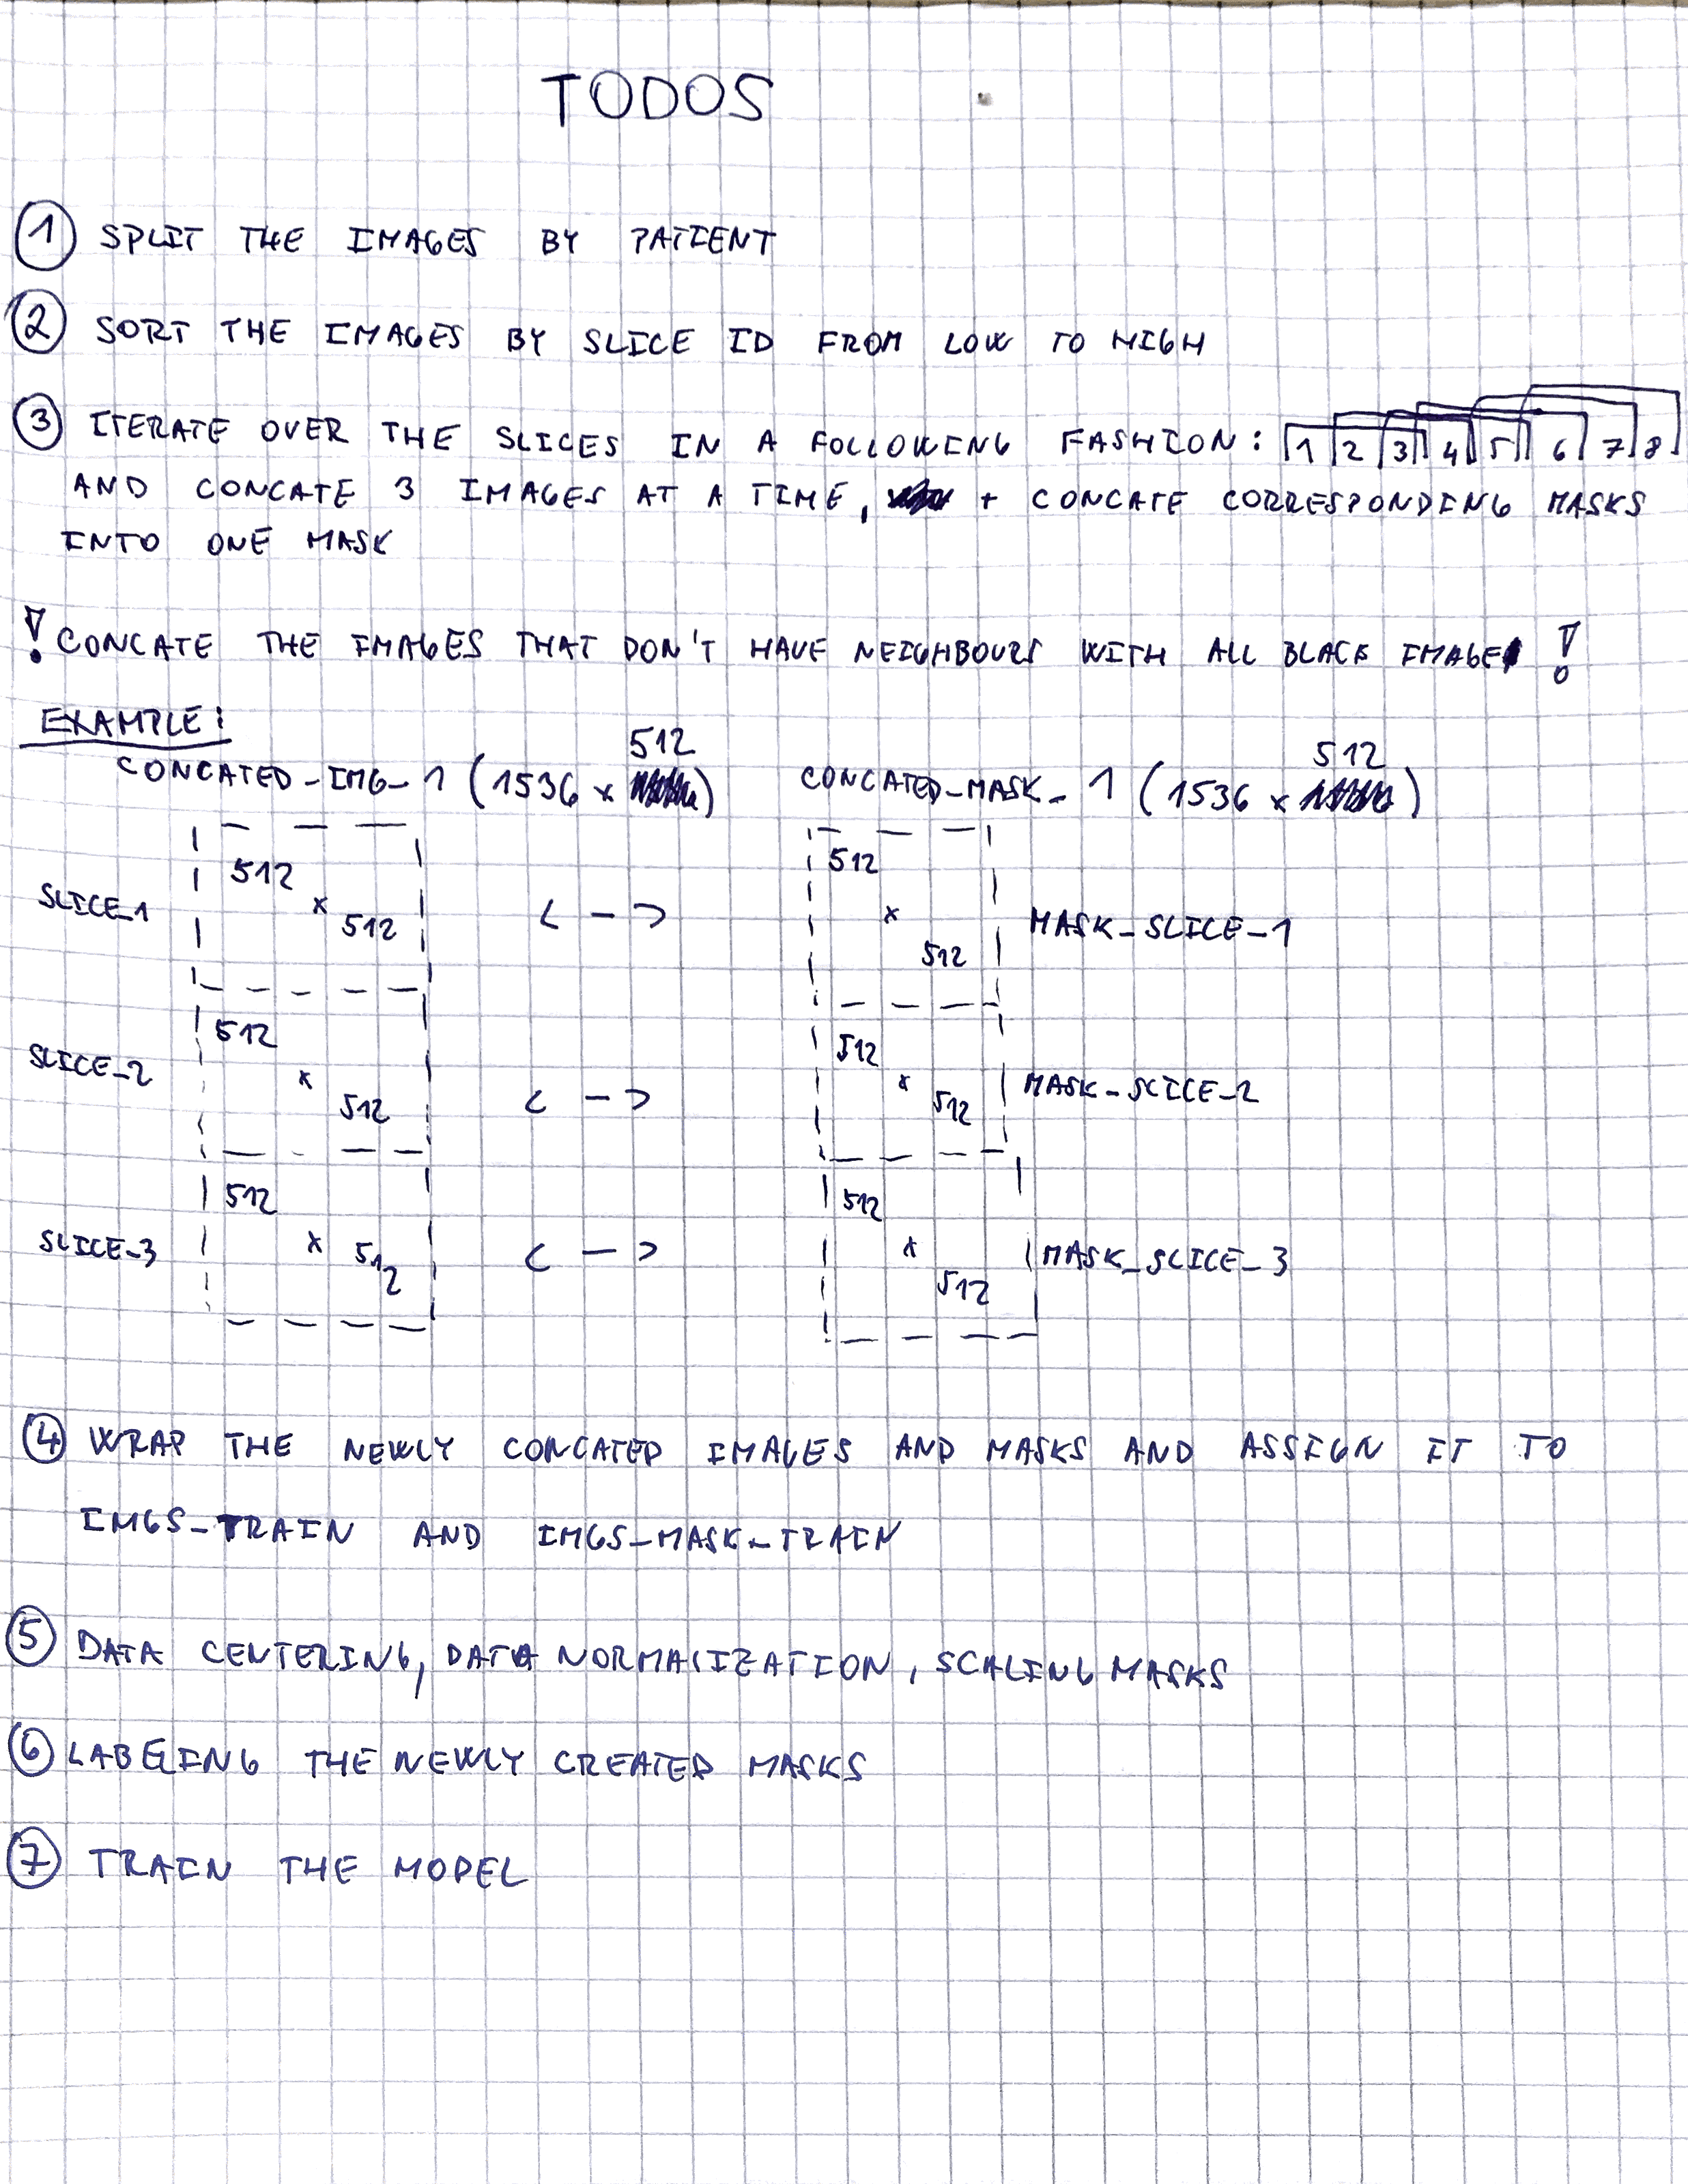 TODOS
① SPLIT THE IMAGES BY PATIENT
② SORT THE IMAGES BY SLICE ID FROM LOW TO HIGH
③ ITERATE OVER THE SLICES IN A FOLLOWING FASHION: 1 2 3 4 5 6 7 8
AND CONCATE 3 IMAGES AT A TIME, + CONCATE CORRESPONDING MASKS
INTO ONE MASK
! CONCATE THE IMAGES THAT DON'T HAVE NEIGHBOURS WITH ALL BLACK IMAGE !
EXAMPLE:
CONCATED_IMG_1 (1536 x 512) CONCATED_MASK_1 (1536 x 512)
SLICE_1 512 x 512 <-> 512 x 512 MASK_SLICE_1
SLICE_2 512 x 512 <-> 512 x 512 MASK_SLICE_2
SLICE_3 512 x 512 <-> 512 x 512 MASK_SLICE_3
④ WRAP THE NEWLY CONCATED IMAGES AND MASKS AND ASSIGN IT TO
IMGS_TRAIN AND IMGS_MASK_TRAIN
⑤ DATA CENTERING, DATA NORMALIZATION, SCALING MASKS
⑥ LABELING THE NEWLY CREATED MASKS
⑦ TRAIN THE MODEL